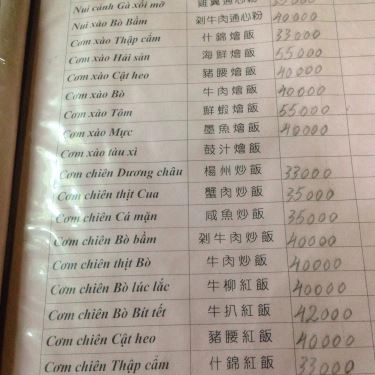 Nui cánh Gà xối mỡ 雞翼通心粉 35000
Nui xào Bò Bầm 剁牛肉通心粉 40000
Cơm xào Thập cẩm 什錦燴飯 33000
Cơm xào Hải sản 海鮮燴飯 55000
Cơm xào Cật heo 豬腰燴飯 40000
Cơm xào Bò 牛肉燴飯 40000
Cơm xào Tôm 鮮蝦燴飯 55000
Cơm xào Mực 墨魚燴飯 40000
Cơm xào tàu xì 鼓汁燴飯
Cơm chiên Dương châu 楊州炒飯 33000
Cơm chiên thịt Cua 蟹肉炒飯 35000
Cơm chiên Cá mặn 咸魚炒飯 35000
Cơm chiên Bò bầm 剁牛肉炒飯 40000
Cơm chiên thịt Bò 牛肉炒飯 40000
Cơm chiên Bò lúc lắc 牛柳紅飯 40000
Cơm chiên Bò Bít tết 牛扒紅飯 42000
Cơm chiên Cật heo 豬腰紅飯 40000
Cơm chiên Thập cẩm 什錦紅飯 33000